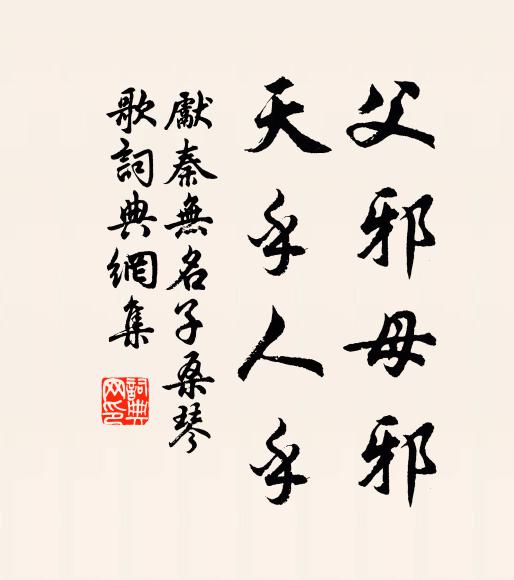 父邪母邪
天乎人乎
獻秦無名子桑琴
歌詞典網集
詞典
网印